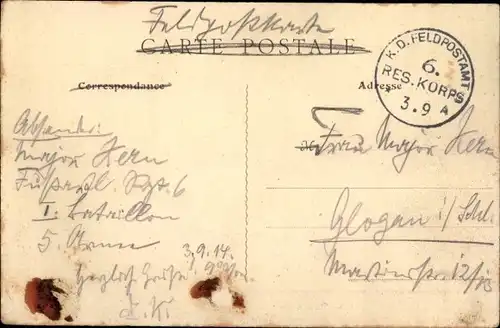 Feldpostkarte
CARTE POSTALE
Correspondance
Adresse
K.D. FELDPOSTAMT
6.
RES. KORPS
3.9 A
Absender:
Major Kern
Fußartl. Rgt. 6
I. Bataillon
5. Armee
3.9.14.
Herzlich Grüße
Frau Major Kern
Glogau i/Schl.